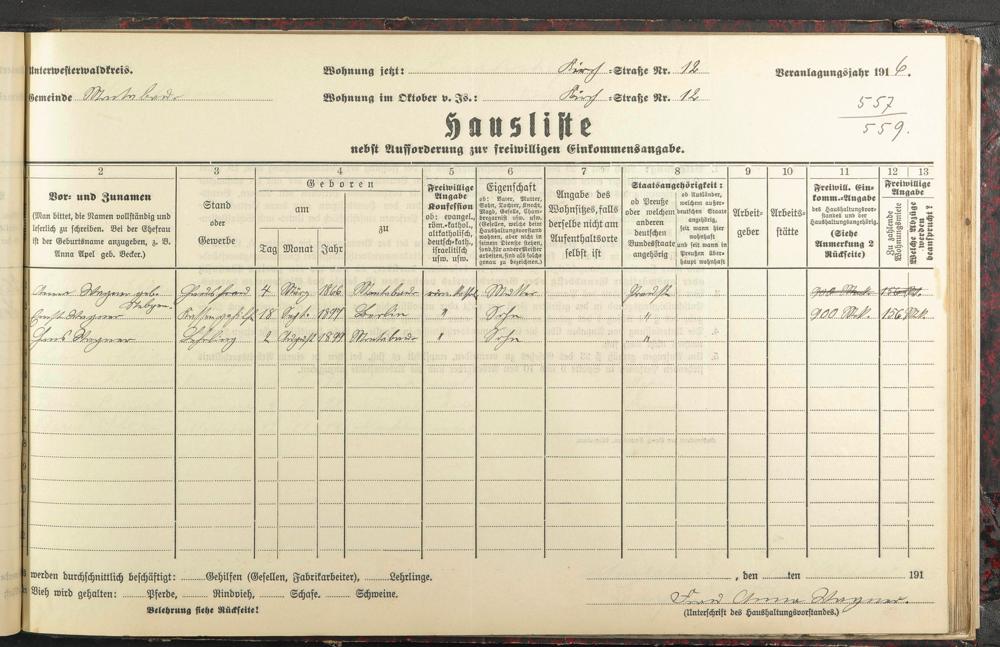 Unterwesterwaldkreis.
Wohnung jetzt: Kirch-Straße Nr. 12
Veranlagungsjahr 1916.
Gemeinde Montabaur
Wohnung im Oktober v. Js.: Kirch-Straße Nr. 12
557
559.
Hausliste
nebst Aufforderung zur freiwilligen Einkommensangabe.
2 3 4 5 6 7 8 9 10 11 12 13
Vor- und Zunamen
(Man bittet, die Namen vollständig und
leserlich zu schreiben. Bei der Ehefrau
ist der Geburtsname anzugeben, z. B.
Anna Apel geb. Becker.)
Stand
oder
Gewerbe
Geboren
am
zu
Tag Monat Jahr
Freiwillige
Angabe
Konfession
ob: evangel.,
röm.-kathol.,
altkatholisch,
deutsch-kath.,
israelitisch
usw. usw.
Eigenschaft
ob: Vater, Mutter,
Sohn, Tochter, Knecht,
Magd, Geselle, Cham-
bregarnist usw. usw.
Angabe des
Wohnsitzes, falls
derselbe nicht am
Aufenthaltsorte
selbst ist
Staatsangehörigkeit:
ob Preuße
oder welchem
anderen
deutschen
Bundesstaate
angehörig
ob Ausländer,
welchem außer-
deutschen Staate
angehörig,
seit wann hier
wohnhaft
und seit wann in
Preußen über-
haupt wohnhaft
Arbeit-
geber
Arbeits-
stätte
Freiwill. Ein-
komm.-Angabe
des Haushaltungsvor-
standes und der
Haushaltungsangehörig.
(Siehe
Anmerkung 2
Rückseite)
Freiwillige
Angabe
Zu zahlende
Wohnungsmiete
Welche Abzüge
werden
beansprucht?
Anna Wagner geb. Hausfrau 4 März 1866 Montabaur röm. kath. Mutter Preuße 900 Mark 156 Mk.
Wagner 18 Sept. 1897 Berlin " Sohn " 900 Mk. 156 Mk.
Hans Wagner Lehrling 2 August 1899 Montabaur " Sohn "
werden durchschnittlich beschäftigt: Gehilfen (Gesellen, Fabrikarbeiter), Lehrlinge.
, den ten 191
Vieh wird gehalten: Pferde, Rindvieh, Schafe. Schweine.
Frau Anna Wagner.
Belehrung siehe Rückseite!
(Unterschrift des Haushaltungsvorstandes.)